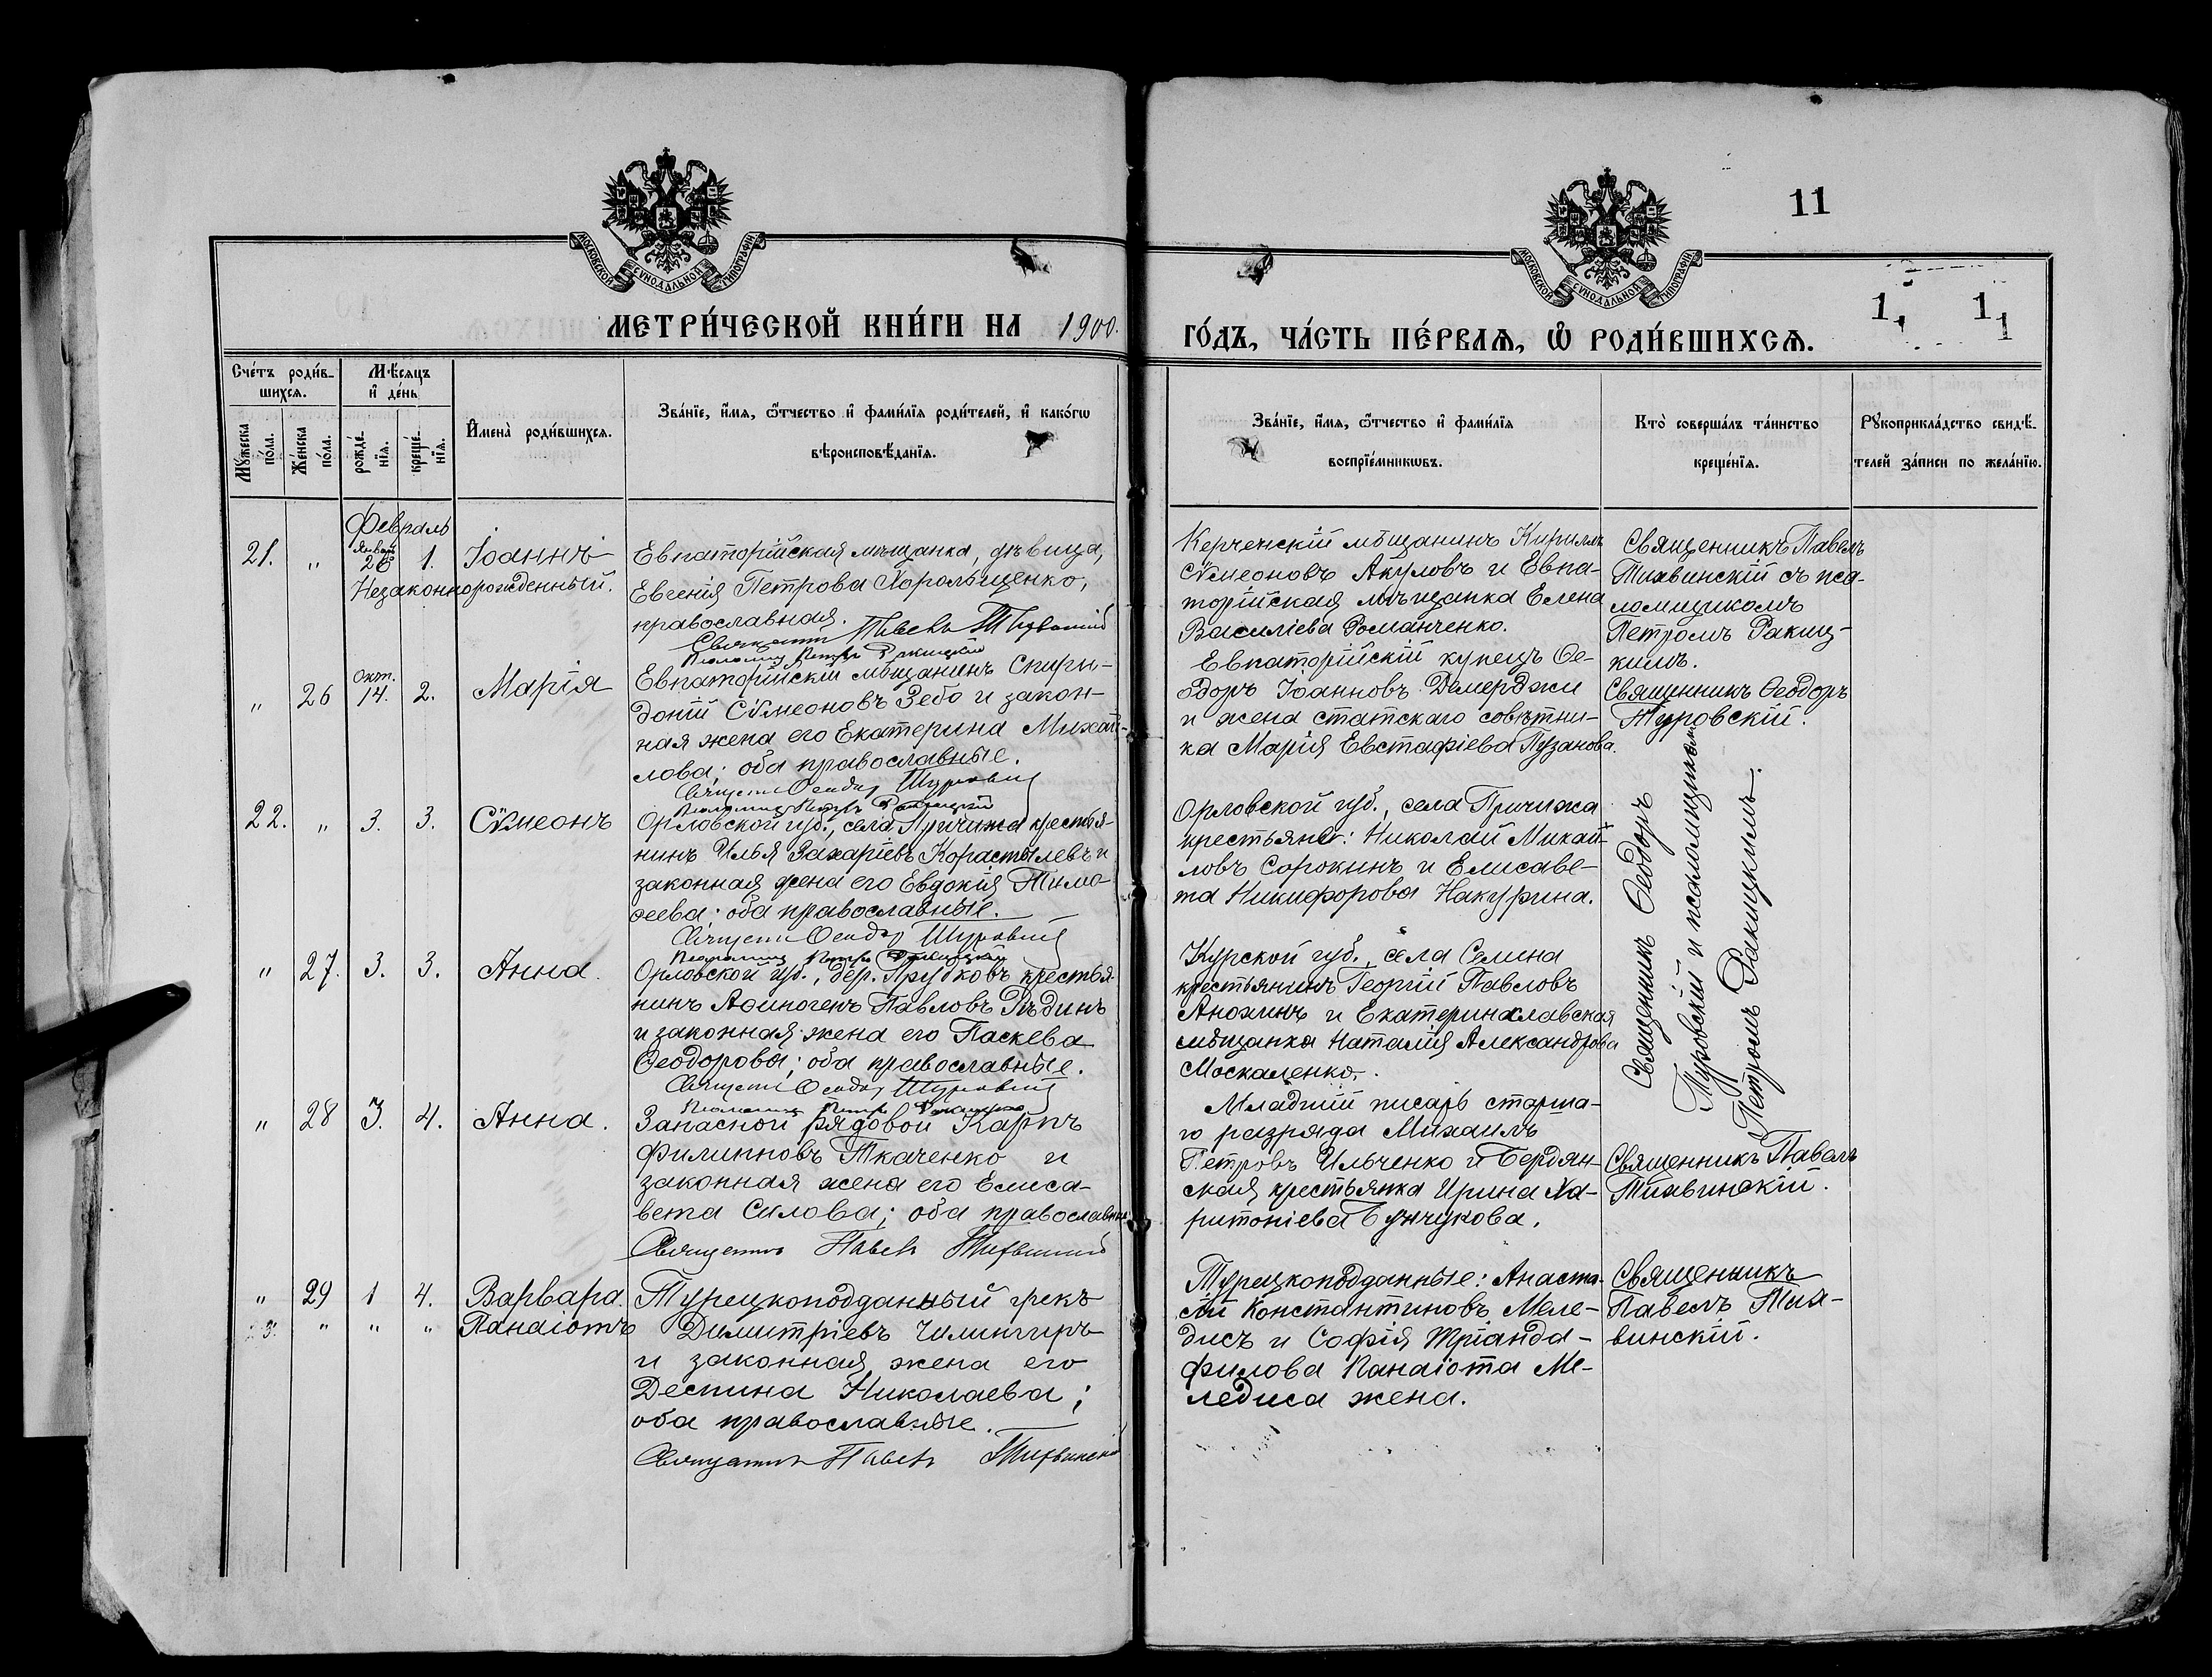 11
МОСКОВСКОЙ СѴНОДАЛЬНОЙ ТИПОГРАФІИ
МОСКОВСКОЙ СѴНОДАЛЬНОЙ ТИПОГРАФІИ
1, 1
1
МЕТРИ́ЧЕСКОЙ КНИ́ГИ НА 1900.
ГО́ДЪ, ЧА́СТЬ ПЕ́РВАѦ, Ѽ РОДИ́ВШИХСѦ.
Сче́тъ роди́в-
шихсѧ.
Мѣ́сѧцъ
и҆ де́нь
Мꙋ́жеска
по́ла.
Же́нска
по́ла.
рожде́-
нїѧ.
креще́-
нїѧ.
И҆мена̀ роди́вшихсѧ.
Зва́нїе, и҆́мѧ, ѻ҆́тчество и҆ фами́лїѧ роди́телей, и҆ како́гѡ
вѣроисповѣ́данїѧ.
Зва́нїе, и҆́мѧ, ѻ҆́тчество и҆ фами́лїѧ
воспрїе́мникѡвъ.
Кто̀ соверша́лъ та́инство
креще́нїѧ.
Рꙋкоприкла́дство свидѣ́-
телей за́писи по жела́нїю.
Февраль
21. " Январь 26 1. Іоаннъ
Незаконнорожденный.
Евпаторійская мѣщанка, дѣвица,
Евгенія Петрова Хорольщенко,
православная.
Священникъ Павелъ Тихвинскій
Псаломщ. Петръ Ракицкій
Керченскій мѣщанинъ Кириллъ
Сѵмеоновъ Акуловъ и Евпа-
торійская мѣщанка Елена
Василіева Романченко.
Священникъ Павелъ
Тихвинскій съ пса-
ломщикомъ
Петромъ Ракиц-
кимъ.
" 26 Окт. 14. 2. Марія
Евпаторійскій мѣщанинъ Спири-
доній Сѵмеоновъ Зебо и закон-
ная жена его Екатерина Михай-
лова; оба православные.
Священ. Ѳеодор Туровскій
Псаломщ. Петръ Ракицкій
Евпаторійскій купецъ Ѳе-
одоръ Іоанновъ Демерджи
и жена статскаго совѣтни-
ка Марія Евстафіева Пузанова.
Священникъ Ѳеодоръ
Туровскій.
22. " 3. 3. Сѵмеонъ
Орловской губ., села Причижа крестья-
нинъ Илья Захаріевъ Корастылевъ и
законная жена его Евдокія Тимо-
ѳеева; оба православные.
Священ. Ѳеодор Туровскій
Псаломщ. Петръ Ракицкій
Орловской губ., села Причижа
крестьяне: Николай Михай-
ловъ Сорокинъ и Елисаве-
та Никифорова Накурина.
Священникъ Ѳеодоръ
Туровскій и псаломщикомъ
Петромъ Ракицкимъ.
" 27. 3. 3. Анна.
Орловской губ., дер. Трубковъ крестья-
нинъ Аѳиногенъ Павловъ Рѣдинъ
и законная жена его Паскева
Ѳеодорова; оба православные.
Священ. Ѳеодор Туровскій
Псаломщ. Петръ Ракицкій
Курской губ., села Семина
крестьянинъ Георгій Павловъ
Анохинъ и Екатеринославская
мѣщанка Наталія Александрова
Москаленко.
" 28 3. 4. Анна.
Запасной рядовой Карпъ
Филипповъ Ткаченко и
законная жена его Елиса-
вета Силова; оба православные
Священникъ Павелъ Тихвинскій
Младшій писарь старша-
го разряда Михаилъ
Петровъ Ильченко и Бердян-
ская крестьянка Ирина Ха-
ритоніева Бунчукова.
Священникъ Павелъ
Тихвинскій.
" 29 1 4. Варвара.
23. " " " Панаіотъ
Турецкоподданный грекъ
Димитріевъ Чилингиръ
и законная жена его
Деспина Николаева;
оба православные.
Священникъ Павелъ Тихвинскій
Турецкоподданные: Анаста-
сій Константиновъ Меле-
дисъ и Софія Тріанда-
филова Панаіота Ме-
ледиса жена.
Священникъ
Павелъ Тих-
винскій.